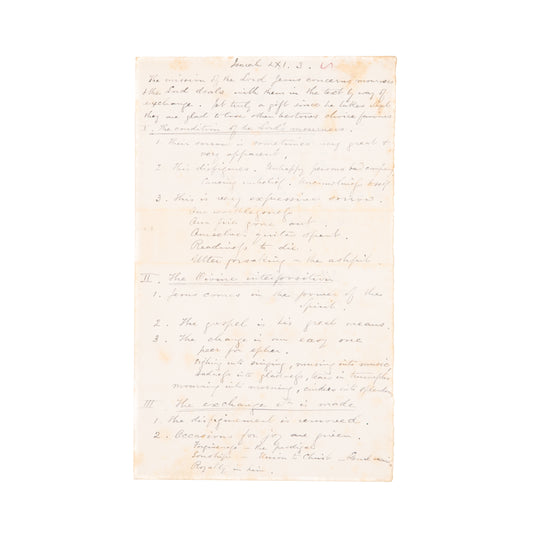 Isaiah LXI. 3.
The mission of the Lord Jesus concerns mourners
& the Lord deals with them in the text by way of
exchange. Yet truly a gift since he takes what
they are glad to lose & then bestows choice favours
I. The condition of the Lord's mourners.
1. Their sorrow is sometimes very great &
very apparent.
2. This disfigures. Unhappy persons
unbelief.
3. This is very expressive sorrow.
Our worthlessness
Our fire gone out.
Ourselves quite spent.
Readiness to die
Utter forsaking — the ashpit.
II. The Divine interposition
1. Jesus comes in the power of the
Spirit.
2. The gospel is his great means.
3. The change is an easy one
peer for epher.
Sighing into singing, musing into music
sadness into gladness, tears in triumphs
mourning into morning, cinders into splendour
III. The exchange is made
1. The disfigurement is removed.
2. Occasions for joy are given.
Forgiveness — the prodigal
Sonship — Union to Christ —
Royalty in